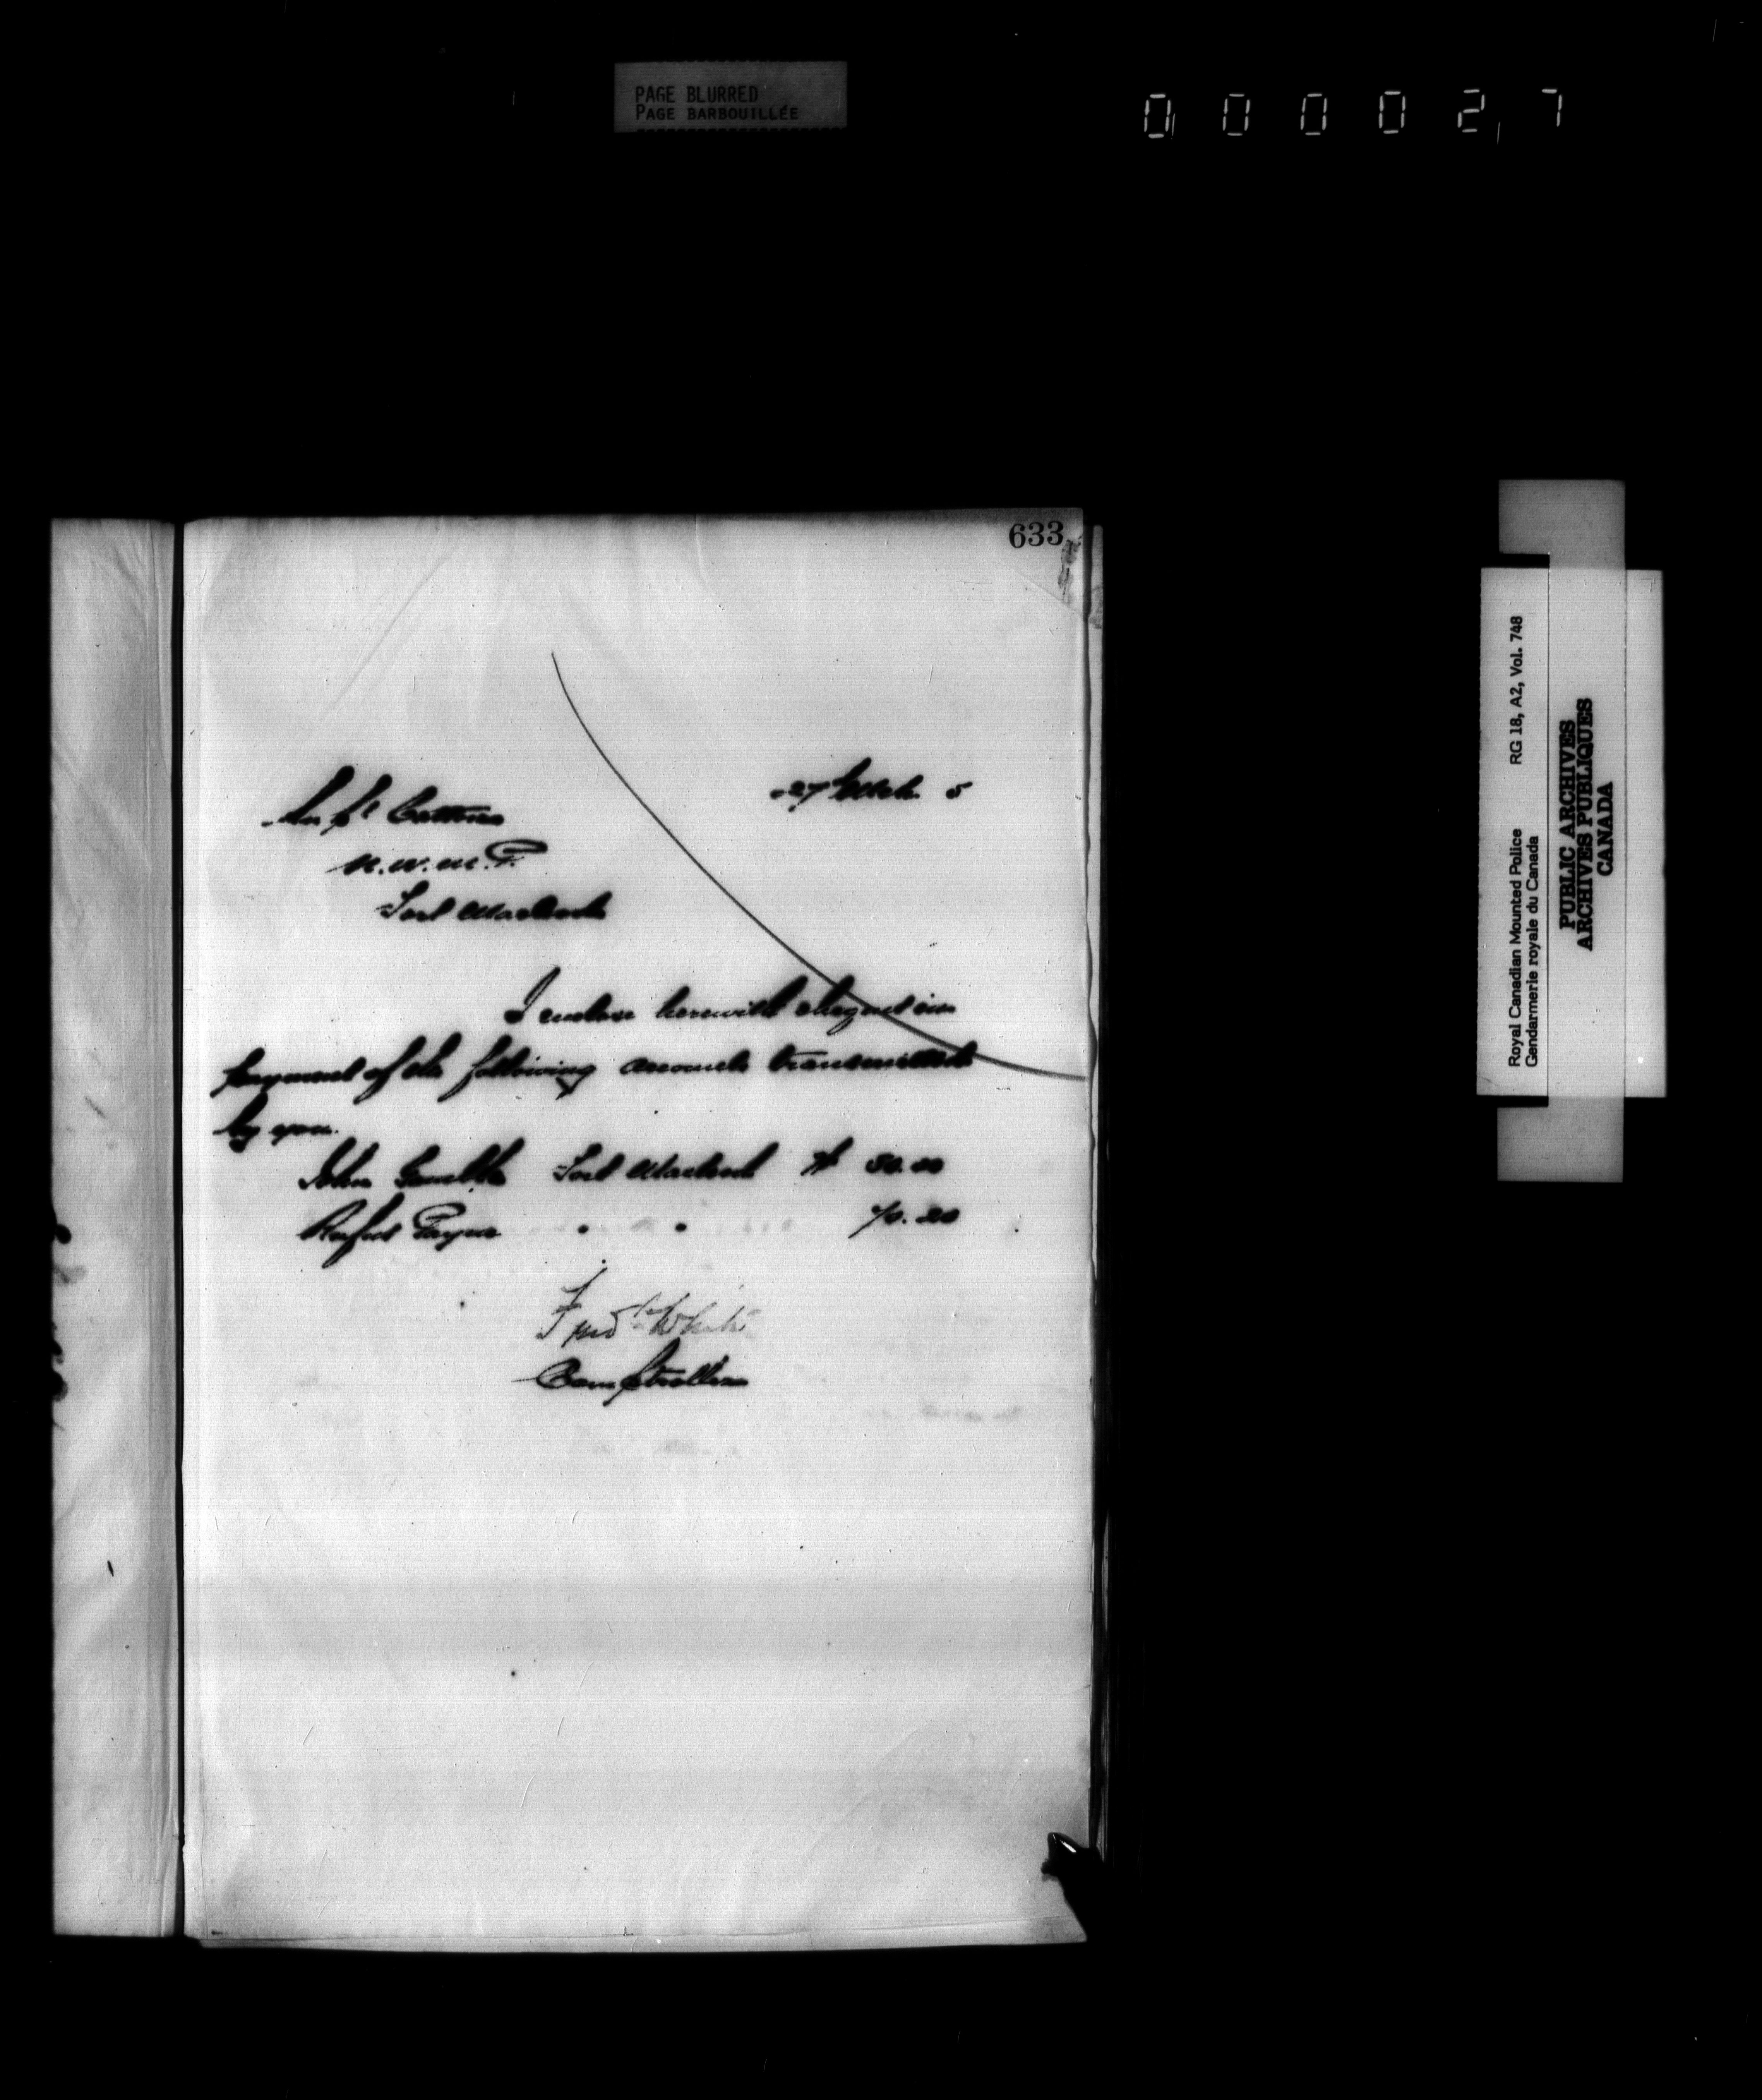 PAGE BLURRED
PAGE BARBOUILLÉE
000027
633
27 Mch. 5
Supt Cotton
N.W.M.P.
Fort Macleod
I enclose herewith cheques in
payment of the following accounts transmitted
by you.
John Fort Macleod $ 50.00
Payne " " 70.20
Fred White
Comptroller
Royal Canadian Mounted Police RG 18, A2, Vol. 748
Gendarmerie royale du Canada
PUBLIC ARCHIVES
ARCHIVES PUBLIQUES
CANADA